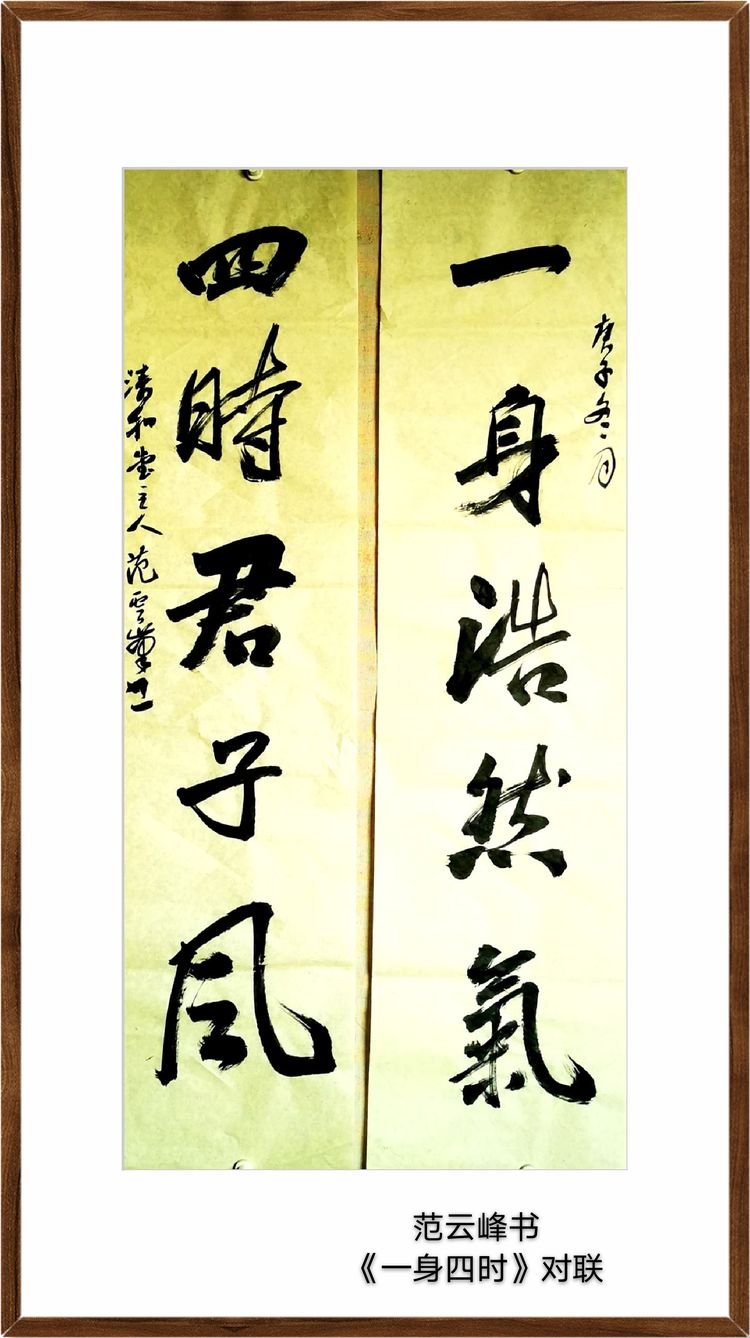 庚子冬月
一身浩然氣
四時君子风
清和堂主人范云峰书
范云峰书
《一身四时》对联